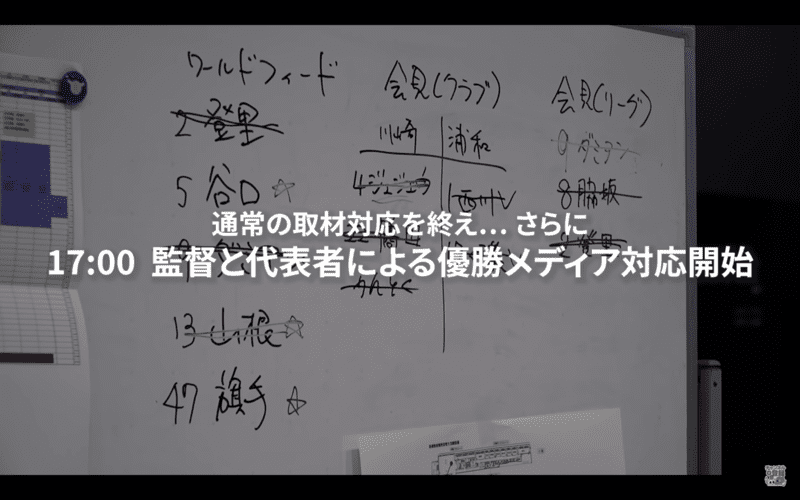 ワールドフィード
2 登里
5 谷口 ☆
13 山根 ☆
47 旗手 ☆
会見(クラブ)
川崎
浦和
4 ジェジエウ
かんとく
1 西川
会見(リーグ)
9 ダミアン
8 脇坂
通常の取材対応を終え… さらに
17:00 監督と代表者による優勝メディア対応開始